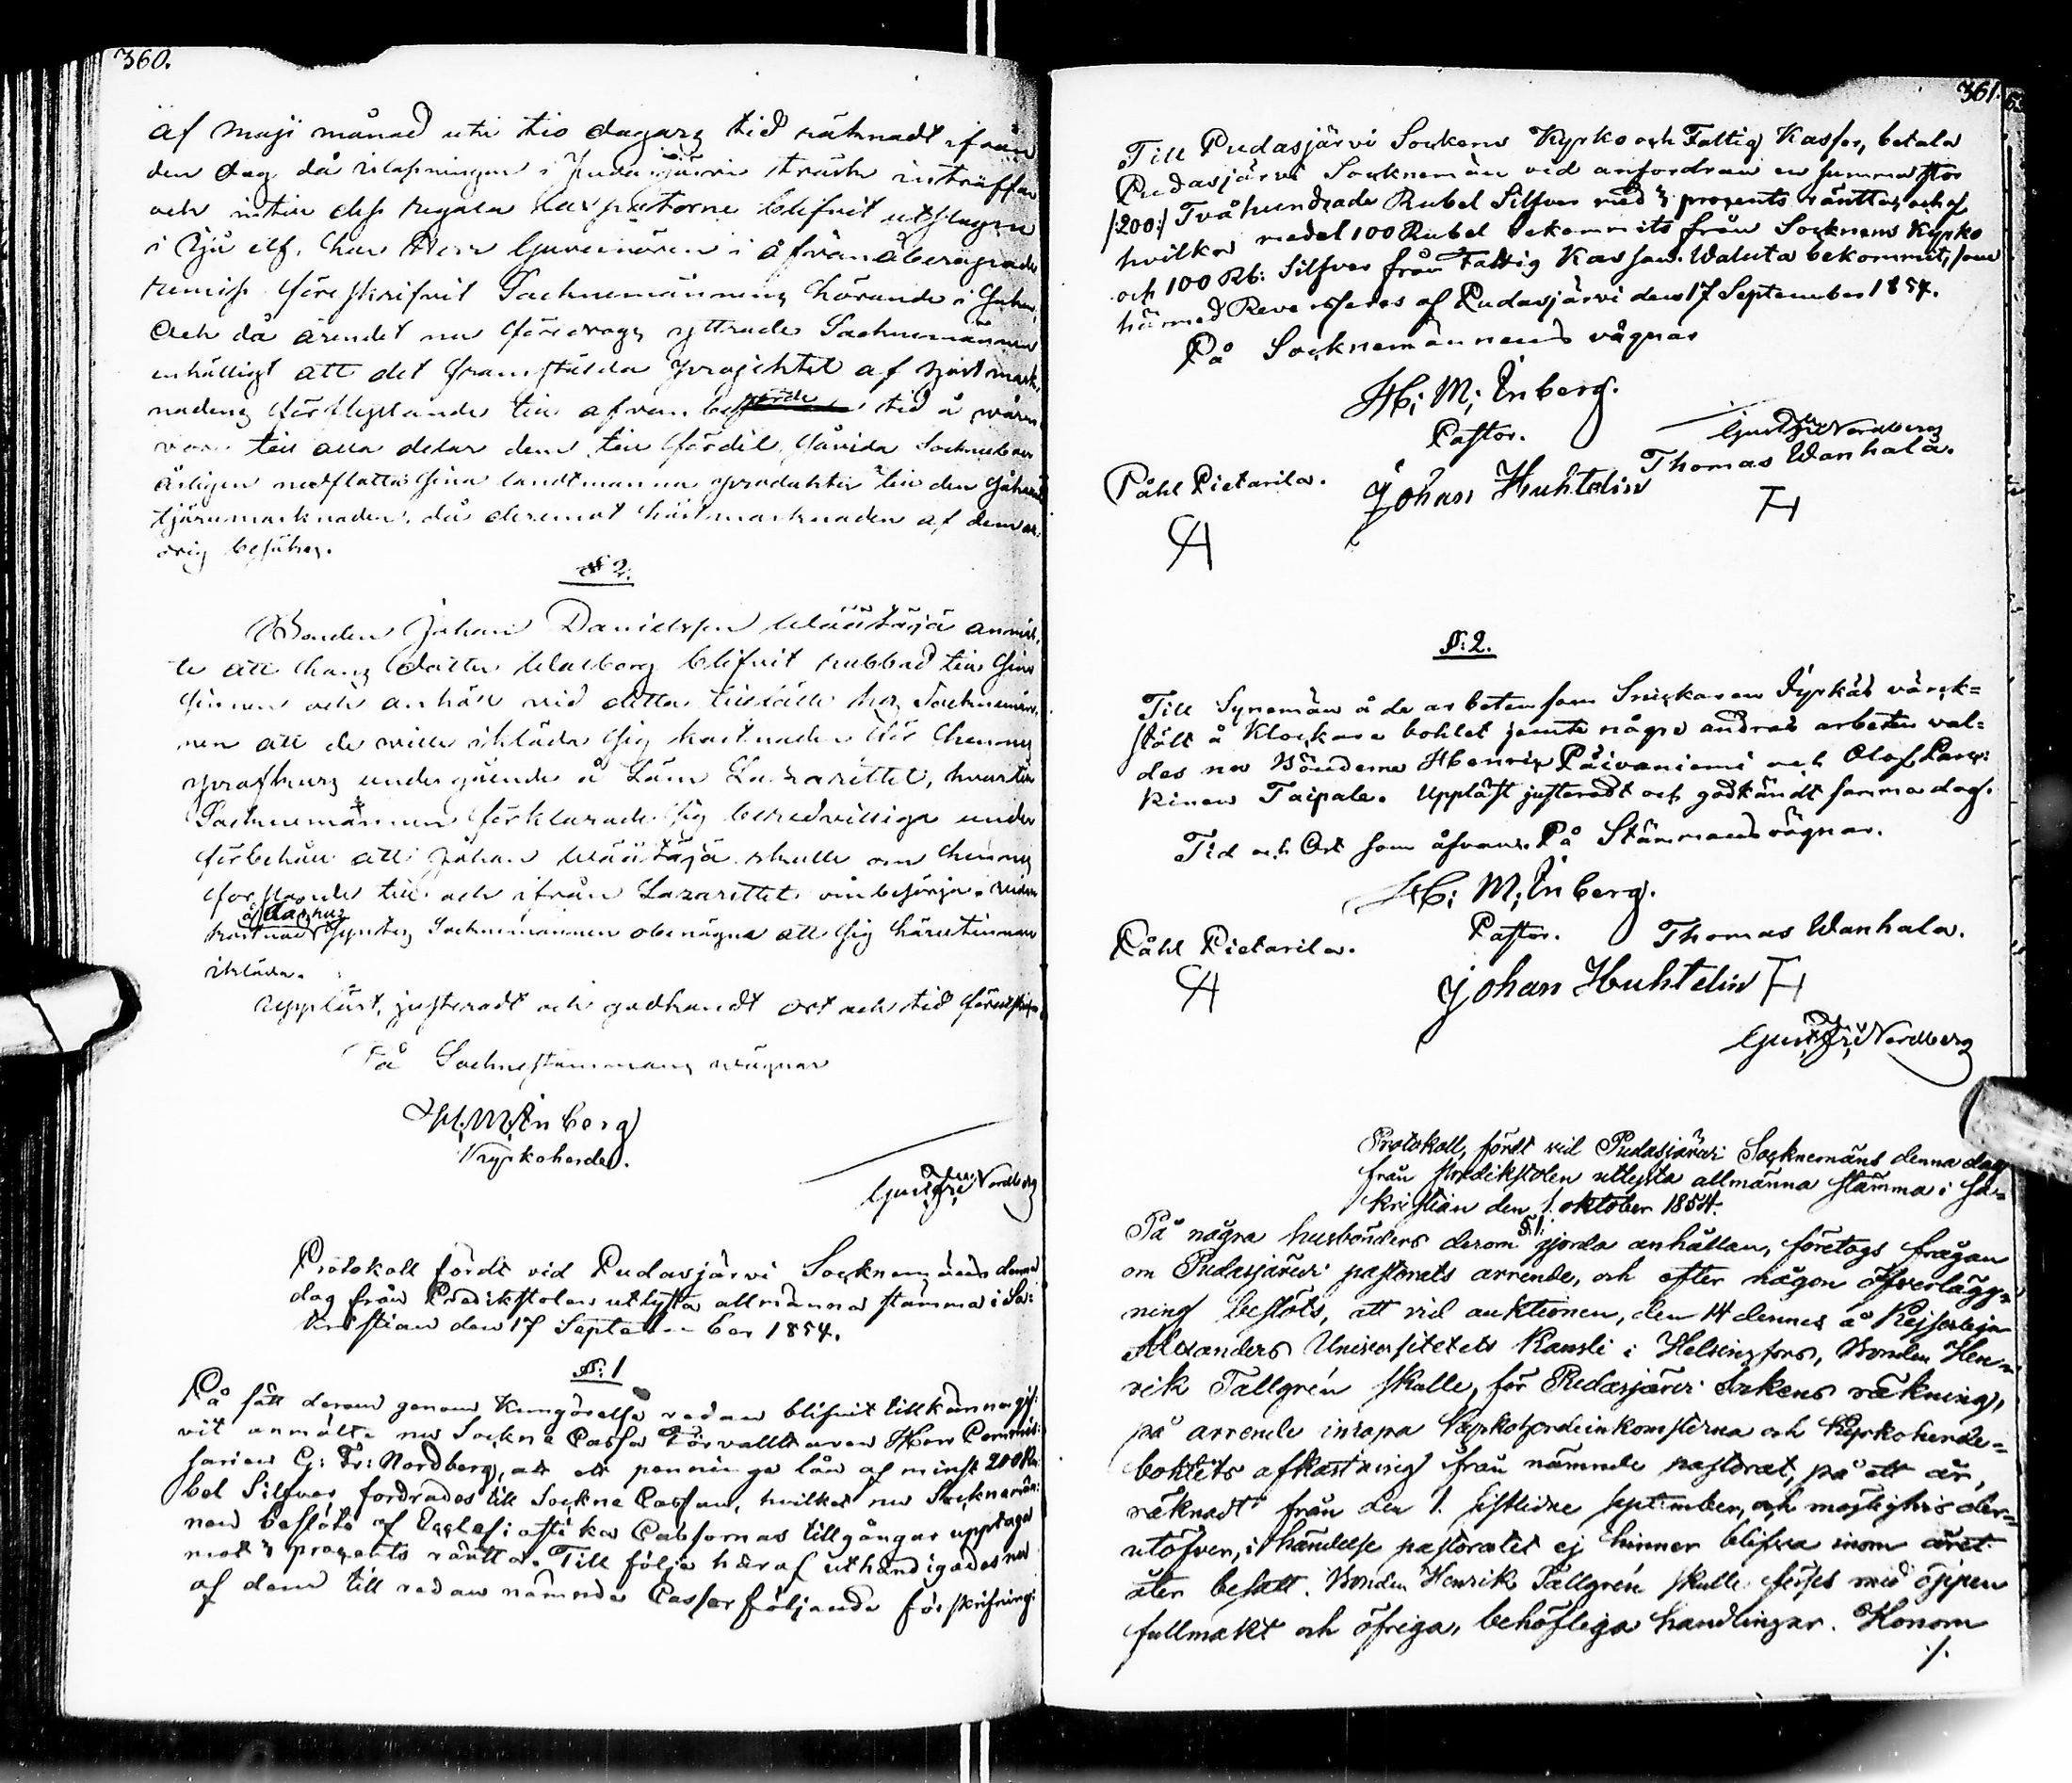 360.
af Maji månad uti tio dagars tid räknadt ifrån
den dag då islossningen i Pudasjärvi träsk inträffar
och intill dess regala laxpatorne blifvit utslagne
i Ijå elf, har Herr Guvernören i åfvanåberopade
remiss föreskrifvit Socknemännens hörande i saken,
Och då ärendet nu föredrogs yttrade Socknemännen
enhälligt att det framstälda projektet af
nadens förflyttande till afvan berörde tid å våren
vore till alla delar dem till fördel, såvida Sockneboer
årligen nedflotta sina landtmanna produkter till den
tjärumarknaden, då deremot höstmarknaden af dem
besökes.
§ 2.
Bonden Johan Danielsson Määttäjä anmäl-
te att hans dotter Walborg blifvit rubbad till sina
sinnen och anhöll vid detta tillfälle hos Socknemän-
nen att de ville ikläda sig kostnaden för hennes
undergående å Läns Lazarettet, hvartill
Socknemännen förklarade sig beredvillige under
förbehåll att Johan Määttäjä skulle om hennes
forslande till och ifrån Lazarettet ombesörja,
kostnad Socknemännen obenägna att sig härutinnan
ikläda.
Uppläst, justeradt och godkändt ort och tid
På Socknestämmans vägnar
H. M. Enberg
Kyrkoherde.
Gust. Fr. Nordberg
Protokoll fördt vid Pudasjärvi Socknemäns denna
dag från Predikstolen utlysta allmänna stämma i Sa-
kristian den 17 September 1854.
§: 1
På sätt derom genom Kungörelse redan blifvit tillkännagif-
vit anmälte nu Sockne Cassa Förvalltaren Herr Commis-
sarien G: Fr: Nordberg, att ett penninge lån af minst 200 Ru-
bel Silfver fordrades till Sockne Cassan, hvilket nu Socknemän-
nen beslöto af Ecclesiastika Cassornas tillgångar upptaga
mot 3 procents ränta. Till följe häraf uthändigades nu
af dem till redan nämnda Cassor följande förskrifning:
361.
Till Pudasjärvi Sockens Kyrko och Fattig Kassor, betala
Pudasjärvi Socknemän vid anfordran en summa stor
/:200:/ Tvåhundrade Rubel Silfver med 3 procents räntta, och af
hvilka medel 100 Rubel bekommits från Socknens Kyrko
och 100 Rb: Silfver från Fattig Kassan. Waluta bekommit, som
härmed Reverseras af Pudasjärvi den 17 September 1854.
På Socknemännens vägnar
H: M: Enberg.
Pastor.
Gust. Fr. Nordberg
Påhl Pietarila.
Johan Huhtelin
Thomas Wanhala.
§: 2.
Till Synemän å de arbeten som Snickaren Fyrkäs värck-
stält å Klockare bohlet jemte några andras arbeten val-
des nu Bönderne Henric Päivaniemi och Olof Parc-
kinen Taipale. Uppläst justeradt och godkändt samma dag.
Tid och Ort som åfvan. På Stämmans vägnar.
H: M: Enberg.
Pastor.
Påhl Pietarila.
Thomas Wanhala.
Johan Huhtelin
Gust. Fr. Nordberg
Protokoll, fördt vid Pudasjärvi Socknemäns denna dag
från predikstolen utlysta allmänna stämma i Sa-
kristian den 1. oktober 1854.
§ 1.
På några husbönders derom gjorda anhållan, företogs frågan
om Pudasjärvi pastorats arrende, och efter någon öfverlägg-
ning beslöts, att vid auktionen, den 14 dennes å Kejserliga
Alexanders Universitetets Kansli i Helsingfors, Bonden Hen-
rik Tallgrén skulle, för Pudasjärvi Sockens räkning,
på arrende inropa Kyrkoherdeinkomsterna och Kyrkoherde-
bohlets afkastning från nämnde pastorat, på ett år,
räknadt från den 1. sistlidne september, och möjligtvis der-
utöfver, i händelse pastoratet ej hinner blifva inom året
åter besatt. Bonden Henrik Tallgrén skulle förses med öppen
fullmakt och öfriga, behöfliga handlingar. Honom
./.